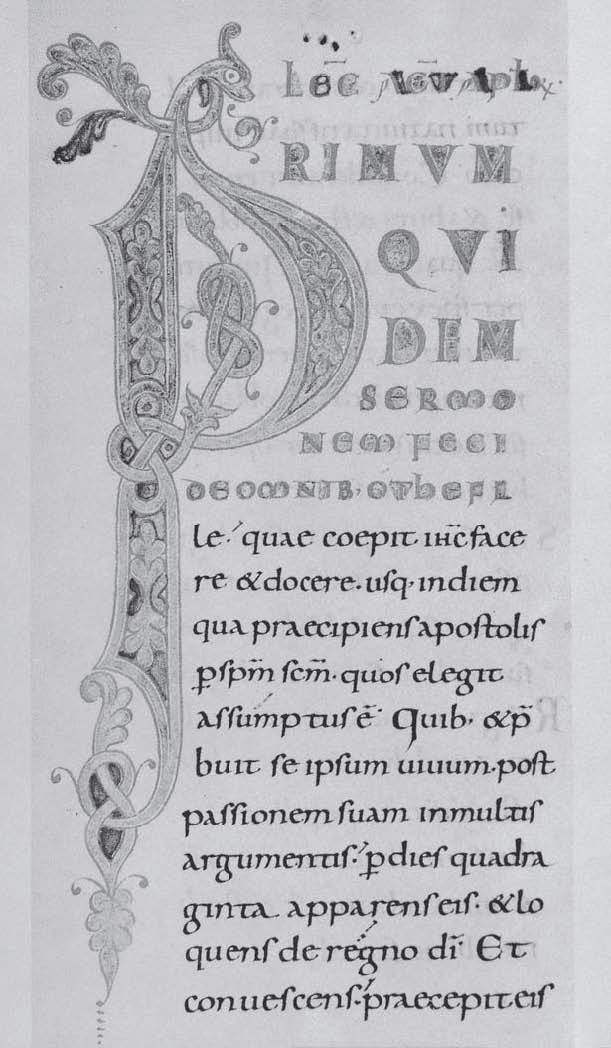 PRIMUM
QVI
DEM
SERMO
NEM FECI
DE OMNIB· O THEFI
le· quae coepit ihc̄ face
re & docere· usq· in diem
qua praecipiens apostolis
ꝑ sp̄m sc̄m· quos elegit
assumptus ē· Quib· & p̄
buit se ipsum uiuum· post
passionem suam in multis
argumentis· ꝑ dies quadra
ginta apparens eis· & lo
quens de regno dī· Et
conuescens· praecepit eis